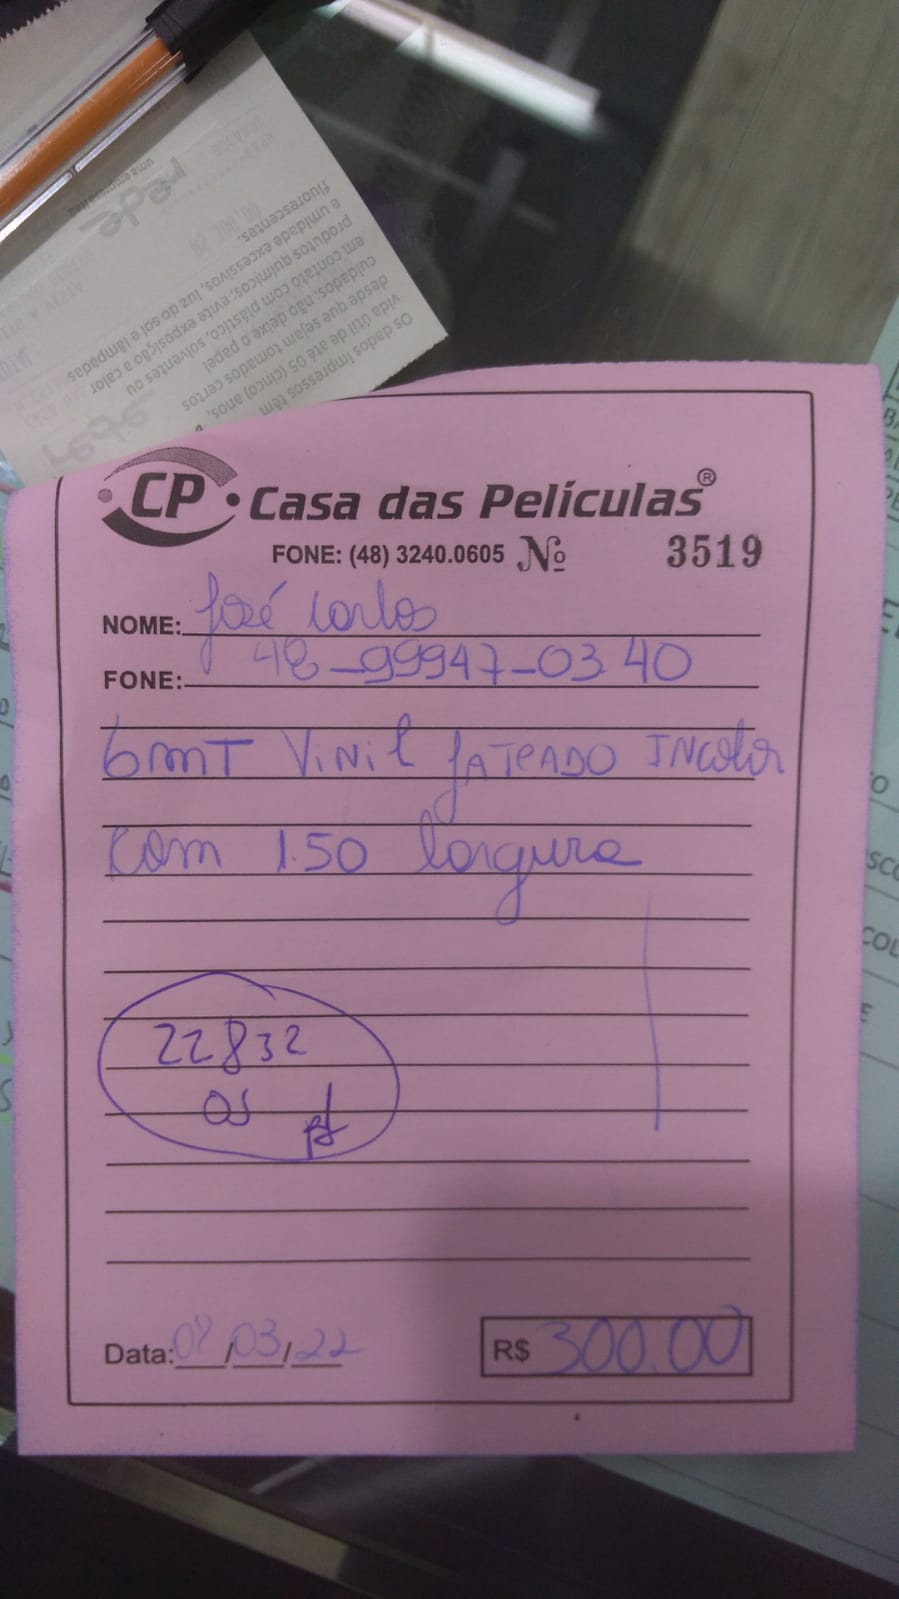 rede
uma empresa
Os dados impressos têm
vida útil de até 05 (cinco) anos,
desde que sejam tomados certos
cuidados: não deixe o papel
em contato com plástico, solventes ou
produtos químicos; evite exposição a calor
e umidade excessivos, luz do sol e lâmpadas
fluorescentes.
rede
CP Casa das Películas®
FONE: (48) 3240.0605 Nº 3519
NOME: José Carlos
FONE: 48-99947-0340
6mT ViNil JATEADO INcolor
com 1.50 largura
22832
OS
Data: /03/22
R$ 300.00